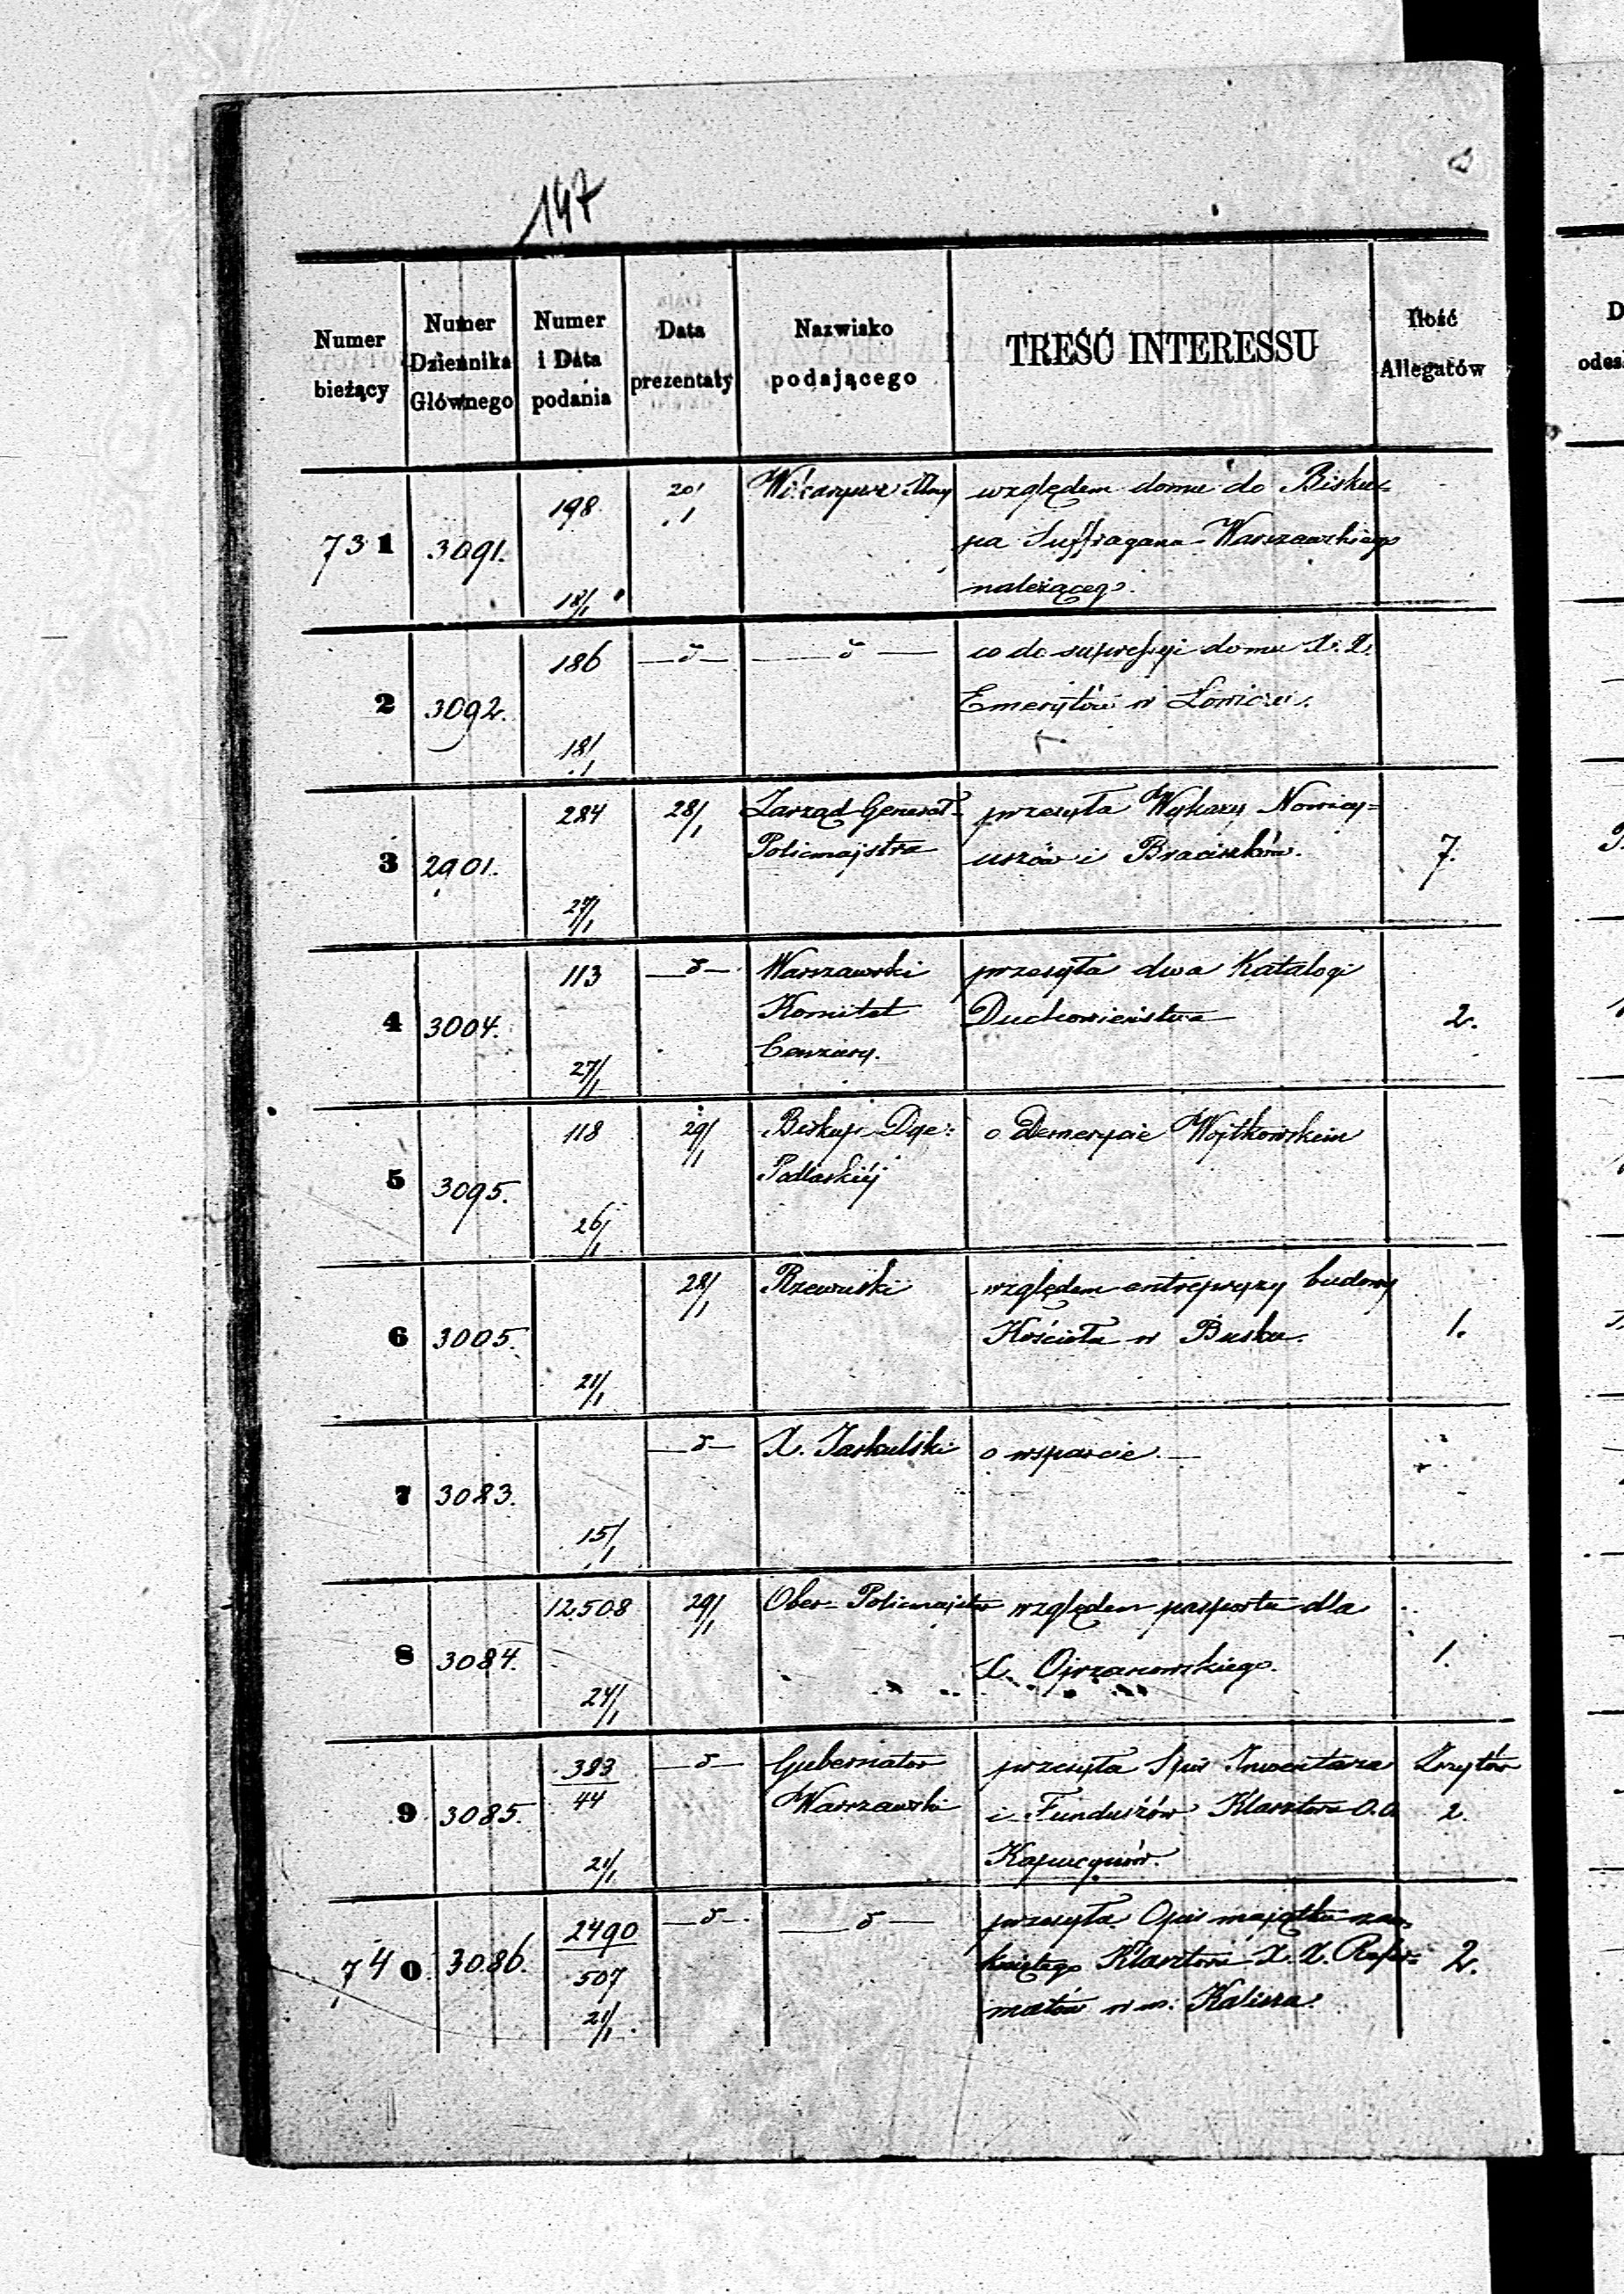 147
Numer bieżący
Numer Dziennika Głównego
Numer i Data podania
Data prezentaty
Nazwisko podającego
TREŚĆ INTERESSU
Ilość Allegatów
731 3091. 198 18/1 20/1
względem domu do Bisku-
pa Suffragana Warszawskiego
należącego.
2 3092. 186 18/1 —"— —"—
co do supressyi domu X. X.
Emerytów w Łowiczu.
3 2901. 284 27/1 28/1
Zarząd Generał-
Policmajstra
przesyła Wykazy Nowicy=
uszów i Braciszków.
7.
4 3004. 113 27/1 —"—
Warszawski
Komitet
Cenzury.
przesyła dwa Katalogi
Duchowieństwa
2.
5 3095. 118 26/1 29/1
Biskup Dye:
Podlaskiéj
o Demerycie Wojtkowskim
6 3005. 21/1 28/1
Rzewuski
względem entrepryzy budowy
Kościoła w Busku.
1.
7 3083. 15/1 —"—
X. Jaskulski
o wsparcie. —
8 3084. 12508 24/1 29/1
Ober-Policmajster
względem pasportu dla
X. Ojrzanowskiego.
1.
9 3085. 383 44 21/1 —"—
Gubernator
Warszawski
przesyła Spis Inwentarza
i Funduszów Klasztoru O.O.
Kapucynów.
2.
740 3086. 2490 507 21/1 —"— —"—
przesyła Opis majątku zam-
kniętego Klasztoru X. X. Refor=
matów w m: Kalisza.
2.